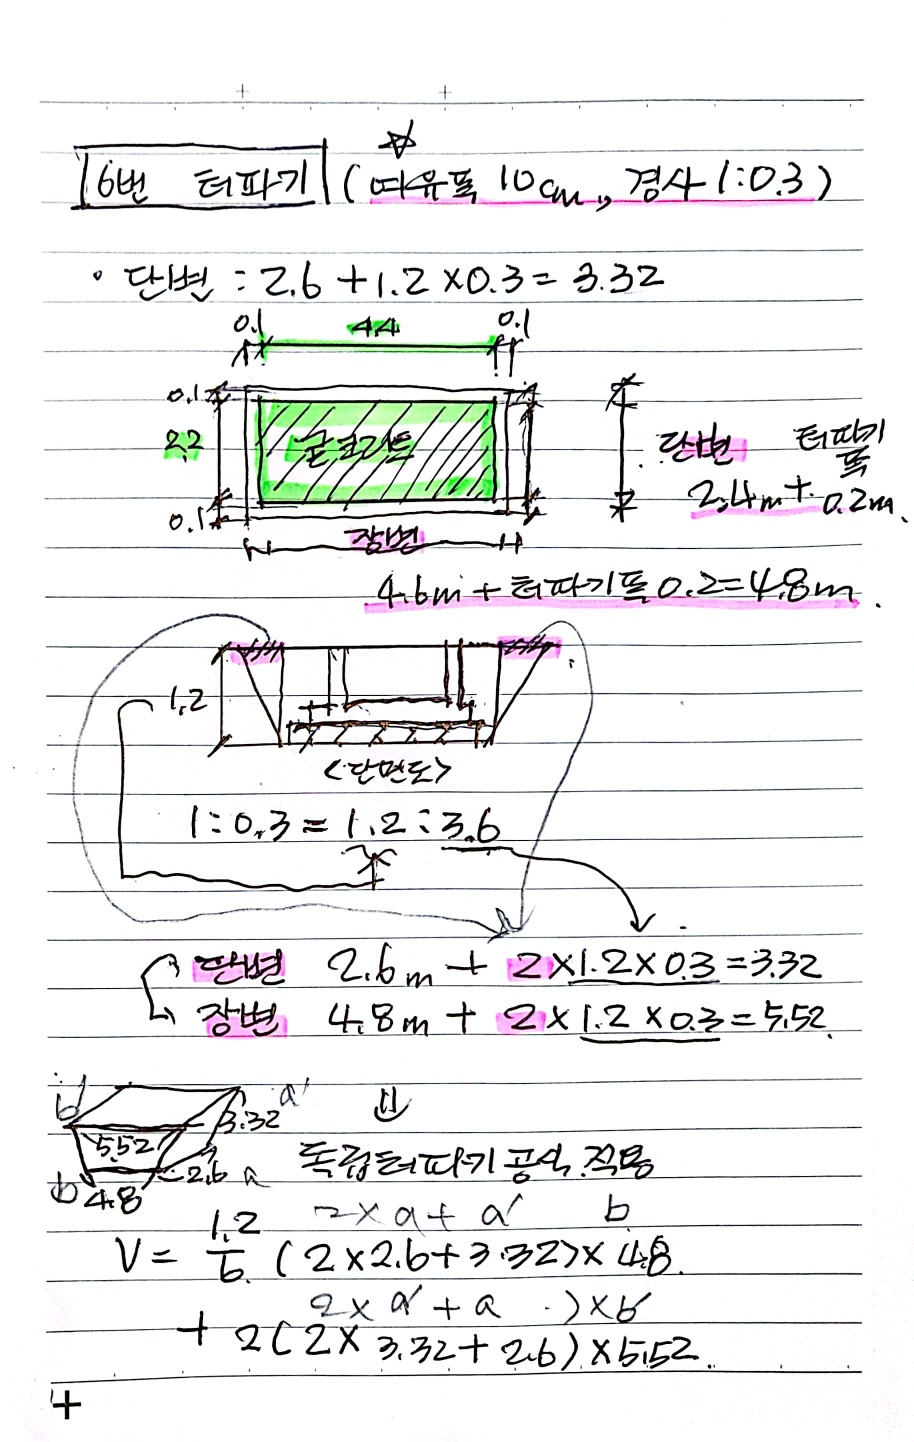 6번 터파기 (여유폭 10cm, 경사 1:0.3)
• 단변 : 2.6 + 1.2 × 0.3 = 3.32
0.1 4.4 0.1
0.1
2.2 콘크리트 단변 터파기
폭
2.4m + 0.2m.
0.1
장변
4.6m + 터파기폭 0.2 = 4.8m.
1.2
<단면도>
1 : 0.3 = 1.2 : 3.6
단변 2.6m + 2×1.2×0.3 = 3.32
장변 4.8m + 2×1.2×0.3 = 5.52.
b' a'
3.32
5.52
2.6 a 독립터파기 공식 적용
b 4.8
2×a + a' b
V = 1.2/6. (2×2.6+3.32)×4.8.
2×a' + a )×b'
+ 2(2×3.32+2.6)×5.52.